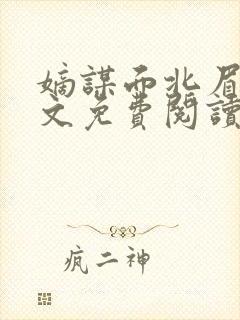 嫡謀而北眉
文免費閱讀
疯二神